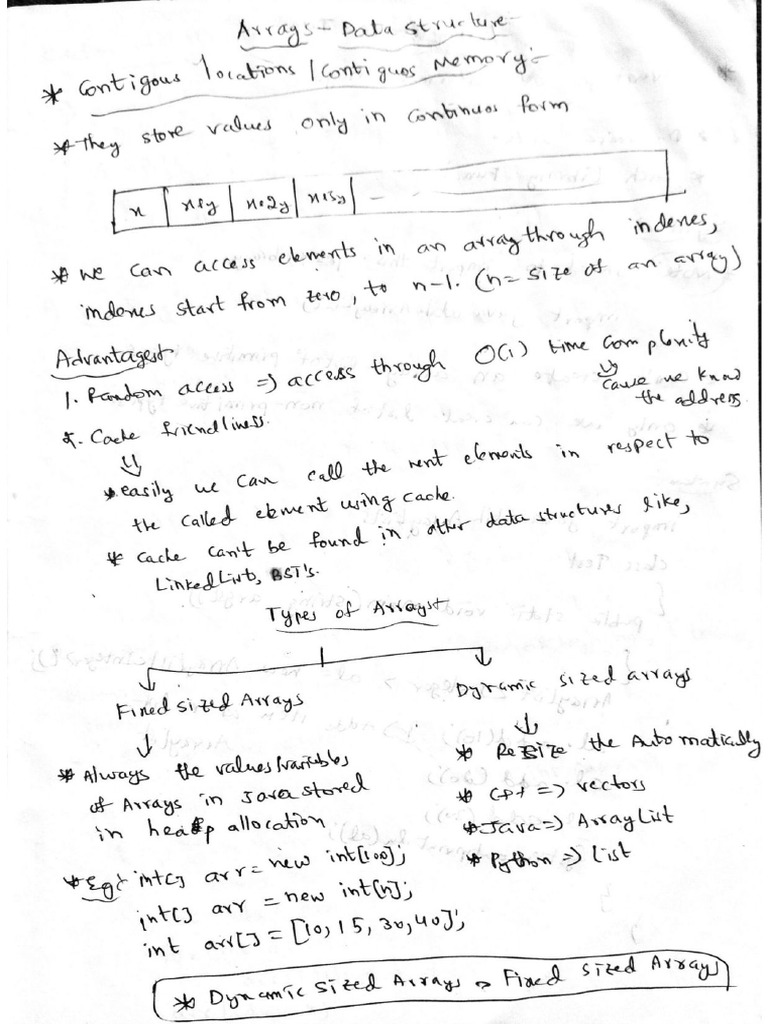 Arrays - Data structure -
* Contigous locations / Contigues Memory:-
* They store values only in continuos form
x | x+y | x+2y | x+3y | -
* we can access elements in an array through indexes,
indexes start from zero, to n-1. (n= size of an array)
Advantages:
1. Random access => access through O(1) time complexity
cause we know
the address.
2. Cache friendliness.
* easily we can call the next elements in respect to
the called element using cache.
* cache can't be found in other data structures like,
Linked List, BST's.
Types of Arrays:
Fixed sized Arrays
Dynamic sized arrays
* Always the values/variables
of Arrays in Java stored
in heap allocation
* Resize the Automatically
* CPP => vectors
* Java => ArrayList
* Python => List
* Eg: int[] arr = new int[100];
int[] arr = new int[n];
int arr[] = [10, 15, 30, 40];
* Dynamic Sized Arrays > Fixed Sized Arrays